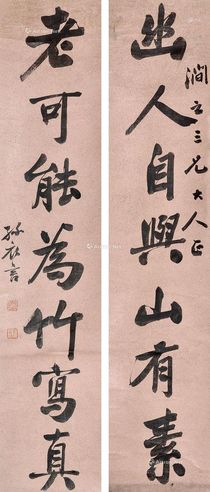 幽人自與山有素
澗三兄大人正
老可能為竹寫真
孫衣言